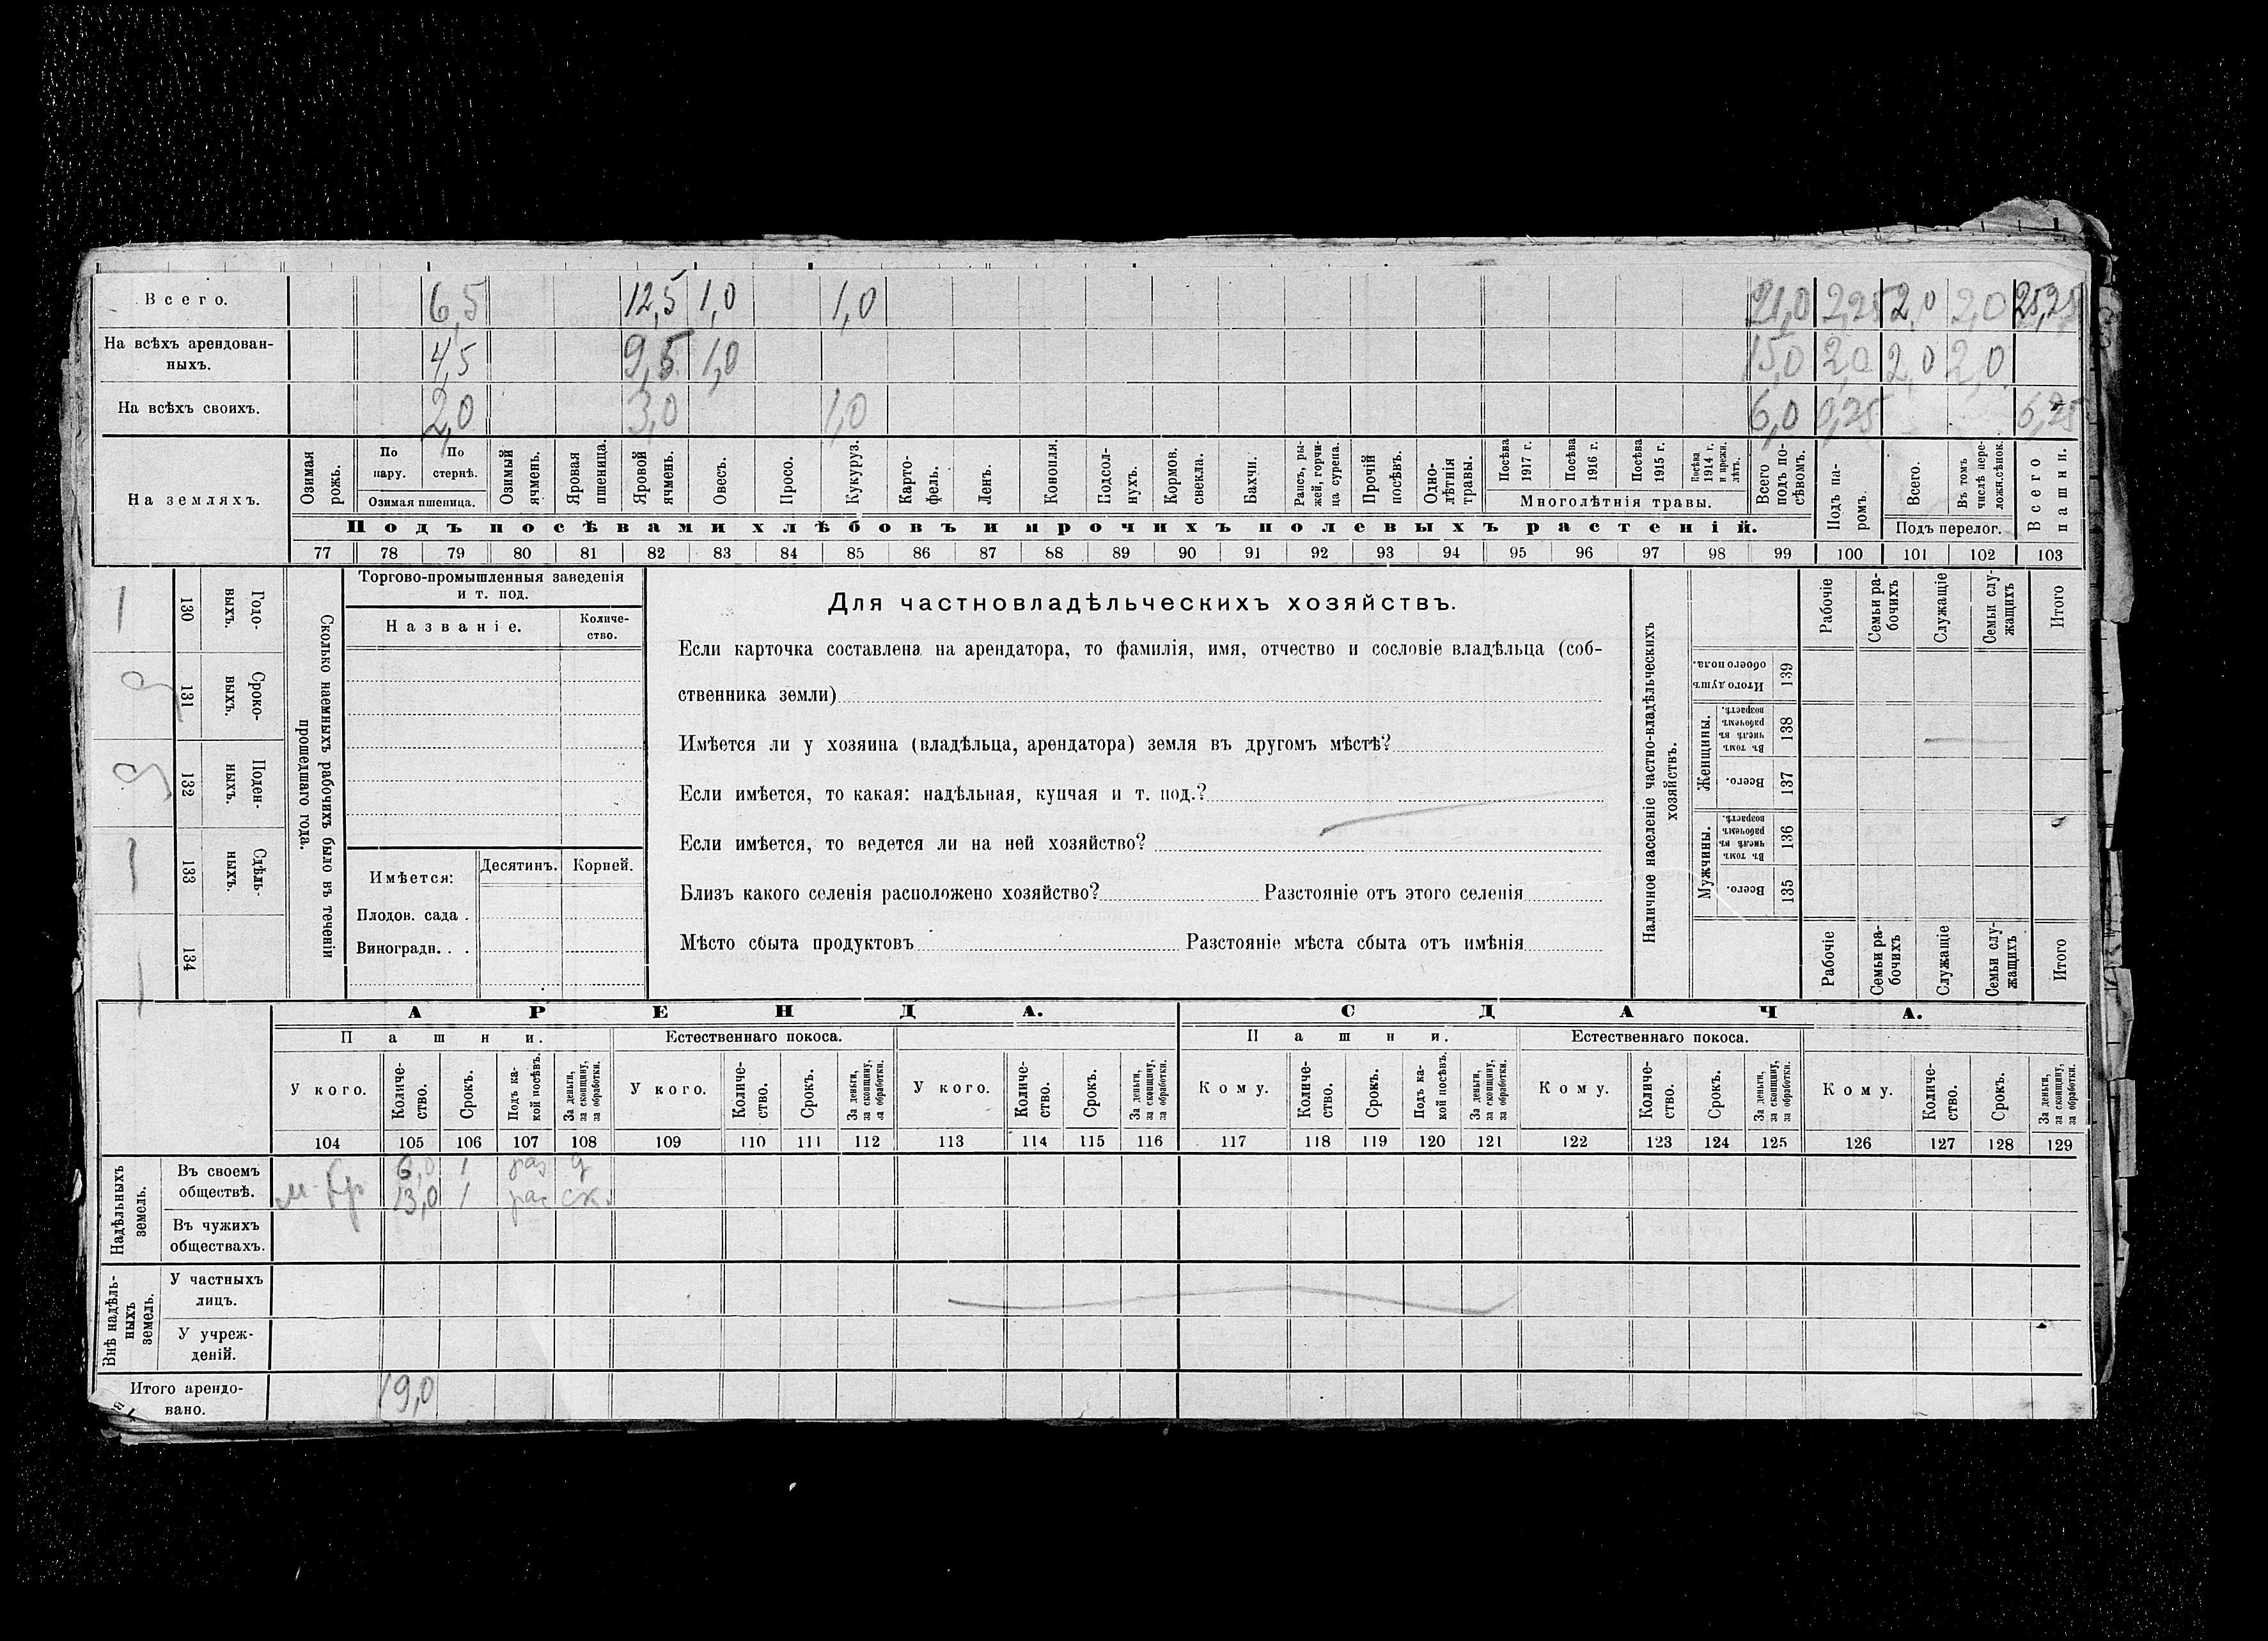 Всего. 6,5 12,5 1,0 1,0 21,0 2,25 2,0 2,0 25,25
На всѣхъ арендован-
ныхъ. 4,5 9,5 1,0 15,0 2,0 2,0 2,0
На всѣхъ своихъ. 2,0 3,0 1,0 6,0 0,25 6,25
На земляхъ.
Озимая рожь.
По пару.
По стернѣ.
Озимая пшеница.
Озимый ячмень.
Яровая пшеница.
Яровой ячмень.
Овесъ.
Просо.
Кукуруз.
Карто-
фель.
Ленъ.
Конопля.
Подсол-
нухъ.
Кормов. свекла.
Бахчи.
Рапсъ, ры-
жей, горчи-
ца сурепа.
Прочій посѣвъ.
Одно-
лѣтнія травы.
Посѣва 1917 г.
Посѣва 1916 г.
Посѣва 1915 г.
Посѣва 1914 г. и прежн. лѣтъ.
Многолѣтнія травы.
Всего подъ по-
сѣвомъ.
Подъ па-
ромъ.
Всего.
Въ томъ числѣ пере-
ложн.сѣнок.
Подъ перелог.
Всего пашни.
Подъ посѣвами хлѣбовъ и прочихъ полевыхъ растеній.
77 78 79 80 81 82 83 84 85 86 87 88 89 90 91 92 93 94 95 96 97 98 99 100 101 102 103
Годо-
выхъ.
130
Сроко-
выхъ.
131
Поден-
ныхъ.
132
Сдѣль-
ныхъ.
133
134
Сколько наемныхъ рабочихъ было въ теченіи
прошедшаго года.
Торгово-промышленныя заведенія
и т. под.
Названіе.
Количе-
ство.
Имѣется:
Десятинъ. Корней.
Плодов. сада .
Виноградн. . .
Для частновладѣльческихъ хозяйствъ.
Если карточка составлена на арендатора, то фамилія, имя, отчество и сословіе владѣльца (соб-
ственника земли)
Имѣется ли у хозяина (владѣльца, арендатора) земля въ другомъ мѣстѣ?
Если имѣется, то какая: надѣльная, купчая и т. под.?
Если имѣется, то ведется ли на ней хозяйство?
Близъ какого селенія расположено хозяйство? Разстояніе отъ этого селенія
Мѣсто сбыта продуктовъ Разстояніе мѣста сбыта отъ имѣнія
Наличное населеніе частно-владѣльческихъ
хозяйствъ.
Рабочіе
Семьи ра-
бочихъ
Служащіе
Семьи слу-
жащихъ
Итого
Итого душъ обоего пола.
139
Женщины.
Въ томъ числѣ въ рабочемъ возрастѣ.
138
Всего.
137
Мужчины.
Въ томъ числѣ въ рабочемъ возрастѣ.
136
Всего.
135
Рабочіе
Семьи ра-
бочихъ
Служащіе
Семьи слу-
жащихъ
Итого
АРЕНДА. СДАЧА.
Пашни. Естественнаго покоса. Пашни. Естественнаго покоса.
У кого.
Количе-
ство.
Срокъ.
Подъ ка-
кой посѣвъ.
За деньги, за скопщину, за обработки.
У кого.
Количе-
ство.
Срокъ.
За деньги, за скопщину, за обработки.
У кого.
Количе-
ство.
Срокъ.
За деньги, за скопщину, за обработки.
Кому.
Количе-
ство.
Срокъ.
Подъ ка-
кой посѣвъ.
За деньги, за скопщину, за обработки.
Кому.
Количе-
ство.
Срокъ.
За деньги, за скопщину, за обработки.
Кому.
Количе-
ство.
Срокъ.
За деньги, за скопщину, за обработки.
104 105 106 107 108 109 110 111 112 113 114 115 116 117 118 119 120 121 122 123 124 125 126 127 128 129
Надѣльныхъ
земель.
Въ своемъ 6,0 1
обществѣ. 13,0 1 ск.
Въ чужихъ
обществахъ.
Внѣ надѣль-
ныхъ
земель.
У частныхъ
лицъ.
У учреж-
деній.
Итого арендо-
вано. 19,0